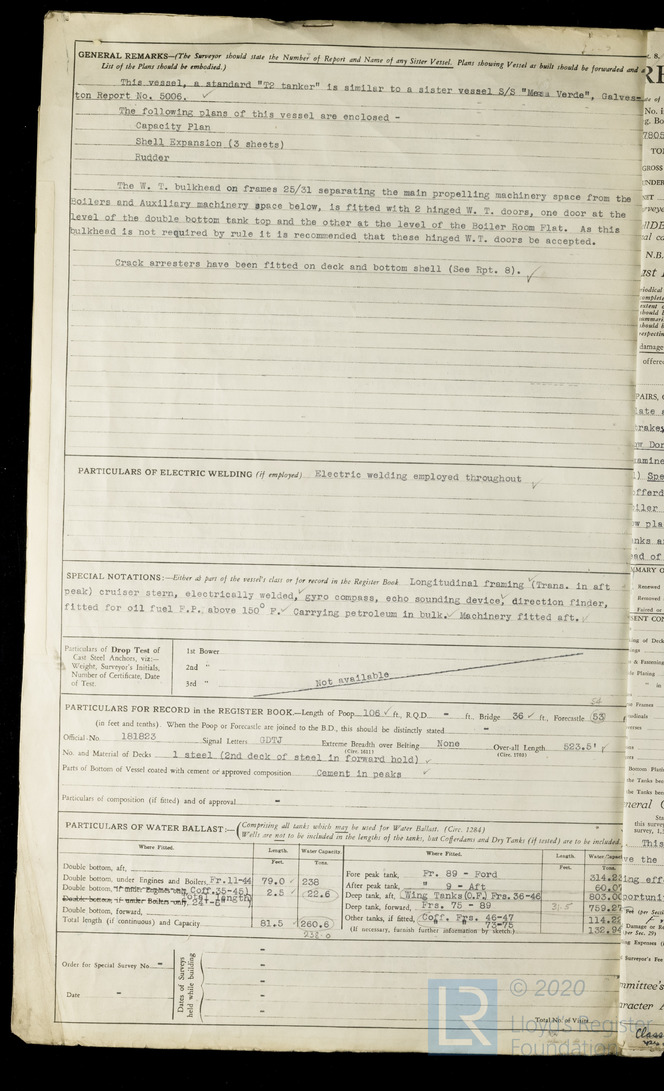 GENERAL REMARKS—(The Surveyor should state the Number of Report and Name of any Sister Vessel. Plans showing Vessel as built should be forwarded and a
List of the Plans should be embodied.)
This vessel, a standard "T2 tanker" is similar to a sister vessel S/S "Mesa Verde", Galves-
ton Report No. 5006.
The following plans of this vessel are enclosed -
Capacity Plan
Shell Expansion (3 sheets)
Rudder
The W. T. bulkhead on frames 25/31 separating the main propelling machinery space from the
Boilers and Auxiliary machinery space below, is fitted with 2 hinged W. T. doors, one door at the
level of the double bottom tank top and the other at the level of the Boiler Room Flat. As this
bulkhead is not required by rule it is recommended that these hinged W.T. doors be accepted.
Crack arresters have been fitted on deck and bottom shell (See Rpt. 8).
PARTICULARS OF ELECTRIC WELDING (if employed) Electric welding employed throughout
SPECIAL NOTATIONS:—Either as part of the vessel's class or for record in the Register Book Longitudinal framing (Trans. in aft
peak) cruiser stern, electrically welded, gyro compass, echo sounding device, direction finder,
fitted for oil fuel F.P. above 150° F. Carrying petroleum in bulk. Machinery fitted aft.
Particulars of Drop Test of
Cast Steel Anchors, viz:—
Weight, Surveyor's Initials,
Number of Certificate, Date
of Test.
1st Bower
2nd "
3rd "
Not available
PARTICULARS FOR RECORD in the REGISTER BOOK.—Length of Poop 106 ft., R.Q.D. = ft., Bridge 36 ft., Forecastle 53
(in feet and tenths). When the Poop or Forecastle are joined to the B.D., this should be distinctly stated
Official No. 181823 Signal Letters GDTJ Extreme Breadth over Belting None Over-all Length 523.5'
(Circ. 1611) (Circ. 1703)
No. and Material of Decks 1 steel (2nd deck of steel in forward hold)
Parts of Bottom of Vessel coated with cement or approved composition Cement in peaks
Particulars of composition (if fitted) and of approval =
PARTICULARS OF WATER BALLAST:—(Comprising all tanks which may be used for Water Ballast. (Circ. 1284)
Wells are not to be included in the lengths of the tanks, but Cofferdams and Dry Tanks (if tested) are to be included.
Where Fitted. Length. Water Capacity.
Feet. Tons.
Double bottom, aft,
Double bottom, under Engines and Boilers, Fr.11-44 79.0 238
Double bottom, if under Engines only, Coff.35-45 2.5 22.6
Double bottom, if under Boilers only, Total length 24'-6"
Double bottom, forward,
Total length (if continuous) and Capacity 81.5 260.6
238.0
Where Fitted. Length. Water Capacity
Feet. Tons.
Fore peak tank, Fr. 89 - Ford 314.2
After peak tank, " 9 - Aft 60.07
Deep tank, aft, Wing Tanks(O.F.) Frs. 36-46 803.0
Deep tank, forward, Frs. 75 - 89 759.27
Other tanks, if fitted, Coff. Frs. 46-47 114.2
73-75 132.94
(If necessary, furnish further information by sketch.)
Order for Special Survey No. =
Date =
Dates of Surveys
held while building
Total No. of Visits
© 2020
LR
Lloyd's Register
Foundation